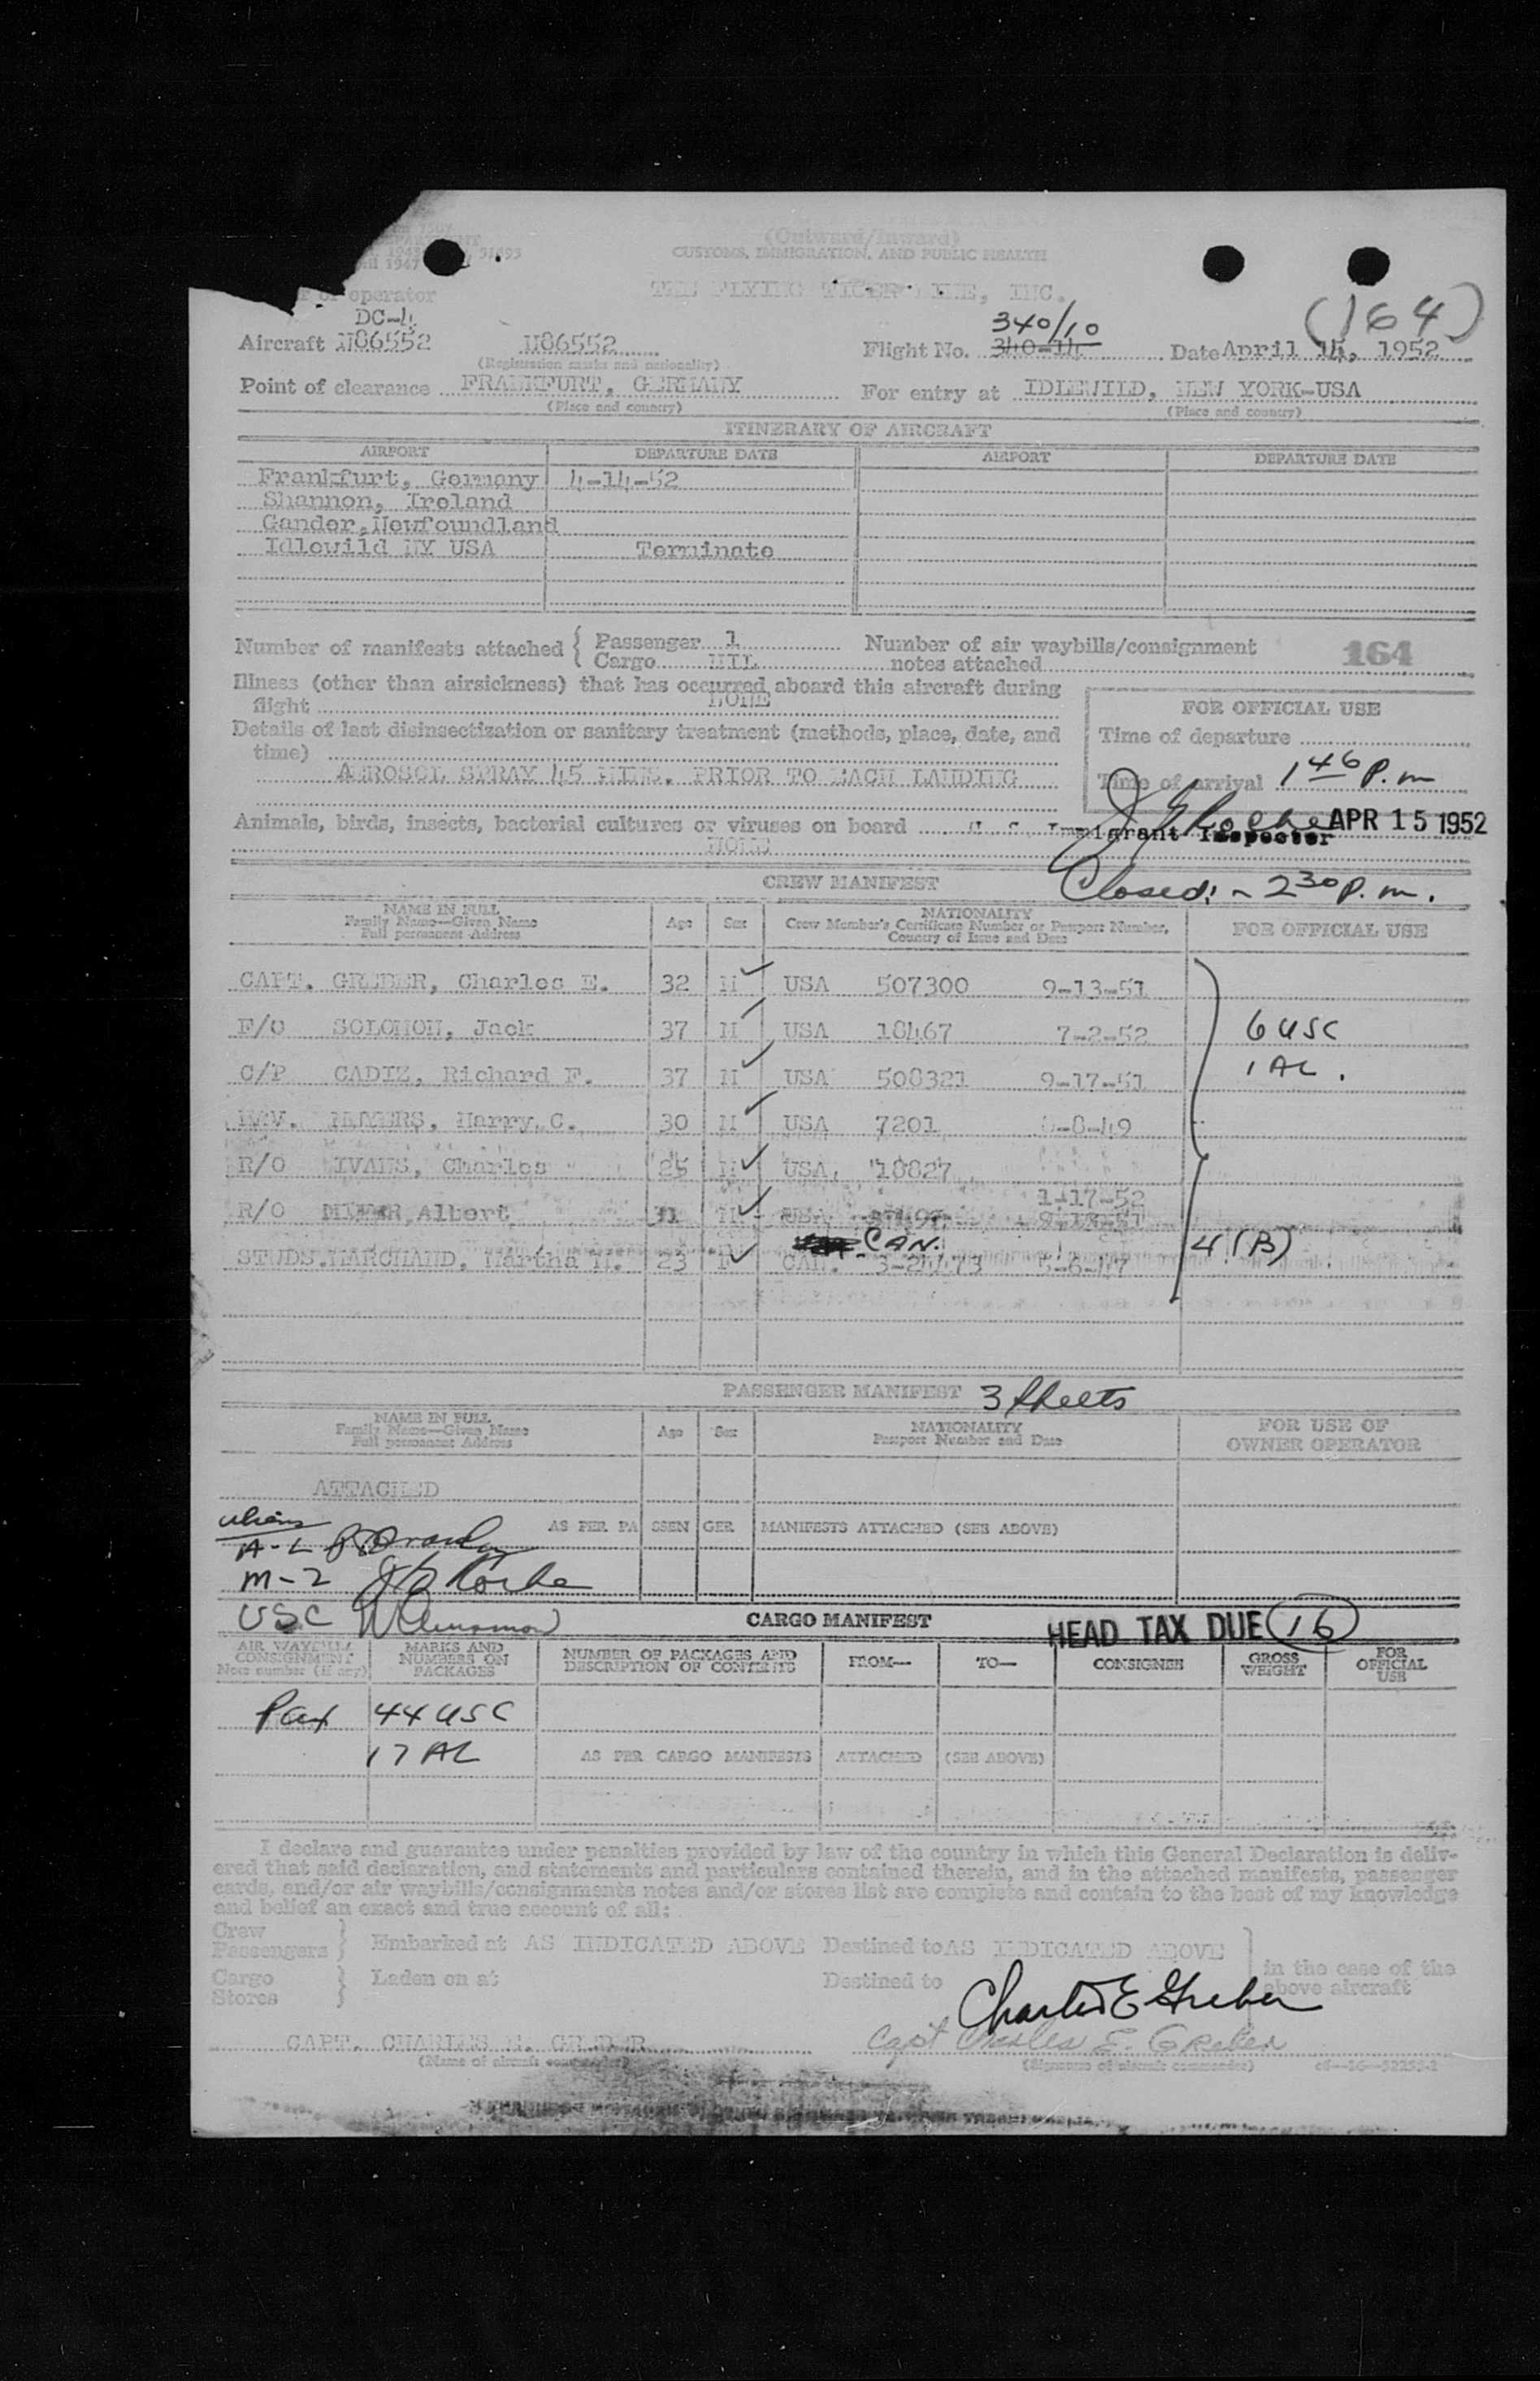 (Outward/Inward)
CUSTOMS, IMMIGRATION, AND PUBLIC HEALTH
operator
THE FLYING TIGER LINE, INC.
(164)
DC-4
340/10
Aircraft N86552 N86552 Flight No. 340-14 Date April 14, 1952
(Registration marks and nationality)
Point of clearance FRANKFURT, GERMANY For entry at IDLEWILD, NEW YORK-USA
(Place and country) (Place and country)
ITINERARY OF AIRCRAFT
AIRPORT DEPARTURE DATE AIRPORT DEPARTURE DATE
Frankfurt, Germany 4-14-52
Shannon, Ireland
Gander, Newfoundland
Idlewild NY USA Terminate
Number of manifests attached { Passenger 1 Number of air waybills/consignment 164
Cargo NIL notes attached
Illness (other than airsickness) that has occurred aboard this aircraft during
flight NONE
FOR OFFICIAL USE
Details of last disinsectization or sanitary treatment (methods, place, date, and
Time of departure
time)
AEROSOL SPRAY 45 MINS. PRIOR TO EACH LANDING
Time of arrival 1 46 P.m
Animals, birds, insects, bacterial cultures or viruses on board
Immigrant Inspector APR 15 1952
NONE
Closed: - 2 30 P.m.
CREW MANIFEST
NAME IN FULL
Family Name—Given Name
Full permanent Address
Age Sex
NATIONALITY
Crew Member's Certificate Number or Passport Number,
Country of Issue and Date
FOR OFFICIAL USE
CAPT. GREBER, Charles E. 32 M USA 507300 9-13-51
F/O SOLOMON, Jack 37 M USA 18467 7-2-52 6 USC
C/P CADIZ, Richard F. 37 M USA 508321 9-17-51 1 AL.
Harry C. 30 M USA 7201 -8-49
R/O Charles 25 M USA 18827
1-17-52
R/O Albert 31 M USA
CAN. 4 (B)
STUDS. MARCHAND, Martha M. 23 F CAN. 5-6-47
PASSENGER MANIFEST 3 Sheets
NAME IN FULL
Family Name—Given Name
Full permanent Address
Age Sex
NATIONALITY
Passport Number and Date
FOR USE OF
OWNER OPERATOR
ATTACHED
Aliens
A-L
AS PER PASSENGER MANIFESTS ATTACHED (SEE ABOVE)
M-2
USC
CARGO MANIFEST
HEAD TAX DUE 16
AIR WAYBILL
CONSIGNMENT
Note number (if any)
MARKS AND
NUMBERS ON
PACKAGES
NUMBER OF PACKAGES AND
DESCRIPTION OF CONTENTS
FROM— TO— CONSIGNEE
GROSS
WEIGHT
FOR
OFFICIAL
USE
Pax 44 USC
17 AL AS PER CARGO MANIFESTS ATTACHED (SEE ABOVE)
I declare and guarantee under penalties provided by law of the country in which this General Declaration is deliv-
ered that said declaration, and statements and particulars contained therein, and in the attached manifests, passenger
cards, and/or air waybills/consignments notes and/or stores list are complete and contain to the best of my knowledge
and belief an exact and true account of all:
Crew
Passengers } Embarked at AS INDICATED ABOVE Destined to AS INDICATED ABOVE
Cargo
Stores } Laden on at Destined to
in the case of the
above aircraft
Charles E Greber
CAPT. CHARLES E. GREBER Capt Charles E. Greber
(Name of aircraft commander) (Signature of aircraft commander)